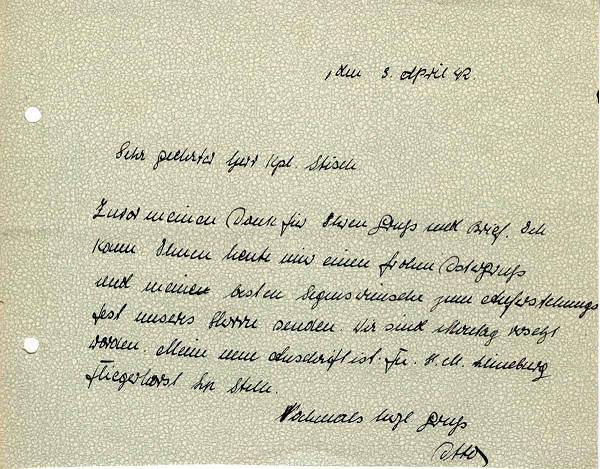 , den 3. April 42.
Sehr geehrter Herr Kpl. Stisch
Zuvor meinen Dank für Ihren Gruß und Brief. Ich
kann Ihnen heute nur einen frohen Ostergruß
und meine besten Segenswünsche zum Auferstehungs
fest unsers Herrn senden. Wir sind Montag versetzt
worden. Meine neue Anschrift ist: Fu. H. M. Lüneburg
Fliegerhorst
Nochmals herzl Gruß
Otto